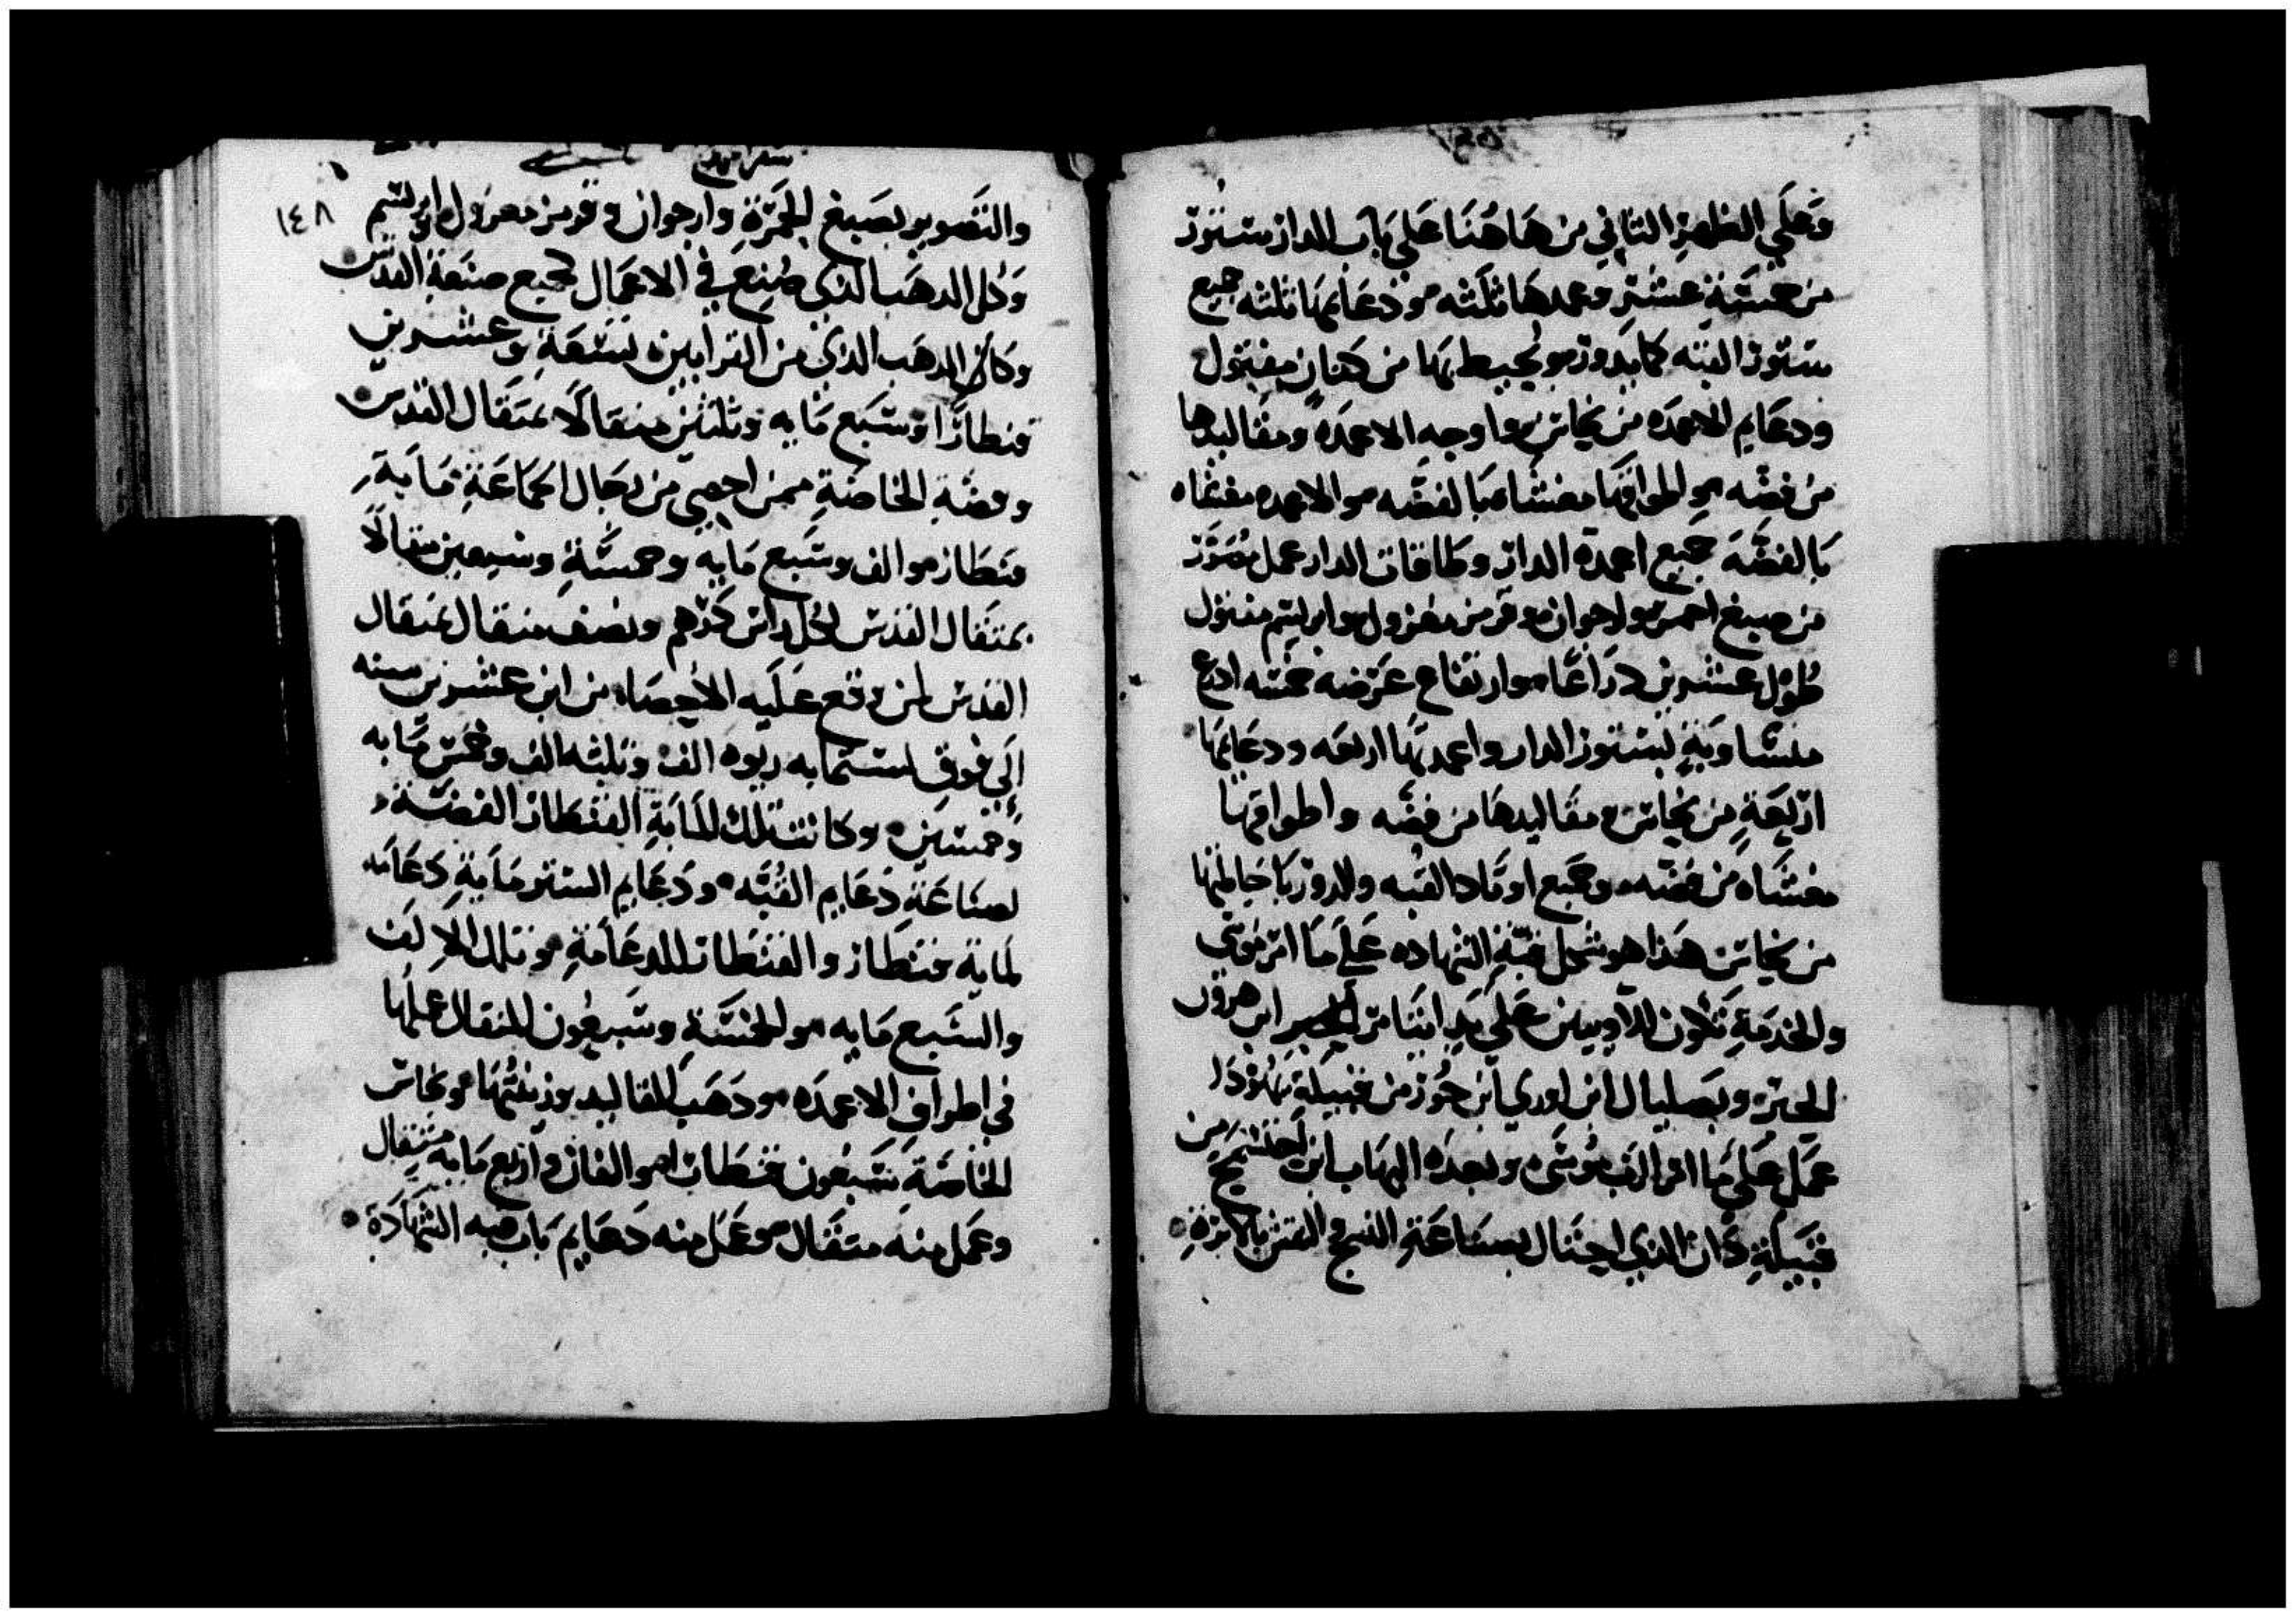 وعلي الظهر الثاني من هاهنا على باب الدار ستور
من خمسة عشر وعمدها ثلثه ودعايمها ثلثه جميع
ستور القبه كما يدور ويحيط بها من كتان مفتول
ودعايم الاعمده من نحاس واوجه الاعمده ومقاليدها
من فضه واطواقها مغشاه بالفضه والاعمده مغشاه
بالفضه جميع اعمدة الدار وطاقات الدار عمل مصور
من صبيغ احمر وارجوان وقرمز مغزول وابريسم مفتول
طول عشرين دراعًا وارتفاع عرضه خمسه ادرع
متساوية لستور الدار واعمدتها اربعه ودعايمها
اربعة من نحاس ومقاليدها من فضه واطواقها
مغشاه من فضه وجميع اوتاد القبه والدور باحاطتها
من نحاس هذا هو شكل قبة الشهاده على ما امر موسى
والخدمة تكون للاويين على يد ايتامر ابن هرون
الحبر وبصليال ابن اوري ابن حور من قبيلة يهودا
عمل على ما امر الرب موسى وبعده اليهاب ابن احسيمح من
قبيلة دان الذي احتال بصناعة النسج والنقش بالابرة
سفر الخروج
١٤٨
والتصوير بصبيغ الحمرة وارجوان وقرمز مغزول وابريسم
وكل الدهب الذي صنع في الاعمال لجميع صنعة القدس
وكان الدهب الذي من القرابين تسعة وعشرين
قنطارًا وسبع مايه وثلثين مثقالًا بمثقال القدس
وفضة الخاصة ممن احصي من رجال الجماعة ماية
قنطار والف وسبع مايه وخمسة وسبعين مثقالًا
بمثقال القدس لكل راس درهم ونصف مثقال بمثقال
القدس لمن وقع عليه الاحصاء من ابن عشرين سنه
الي فوق لستمايه ربوه الف وثلثه الف وخمس مايه
وخمسين وكانت تلك الماية القنطار الفضة
لصناعة دعايم القبه ودعايم الستر ماية دعامه
لماية قنطار والقنطار للدعامة وتلك الالف
والسبع مايه والخمسة وسبعون المثقال عملها
في اطراف الاعمده ودهب المقاليد وزينتها ونحاس
الخاصة سبعون قنطار والفان واربع مايه مثقال
وعمل منه مثقال وعمل منه دعايم باب قبه الشهادة